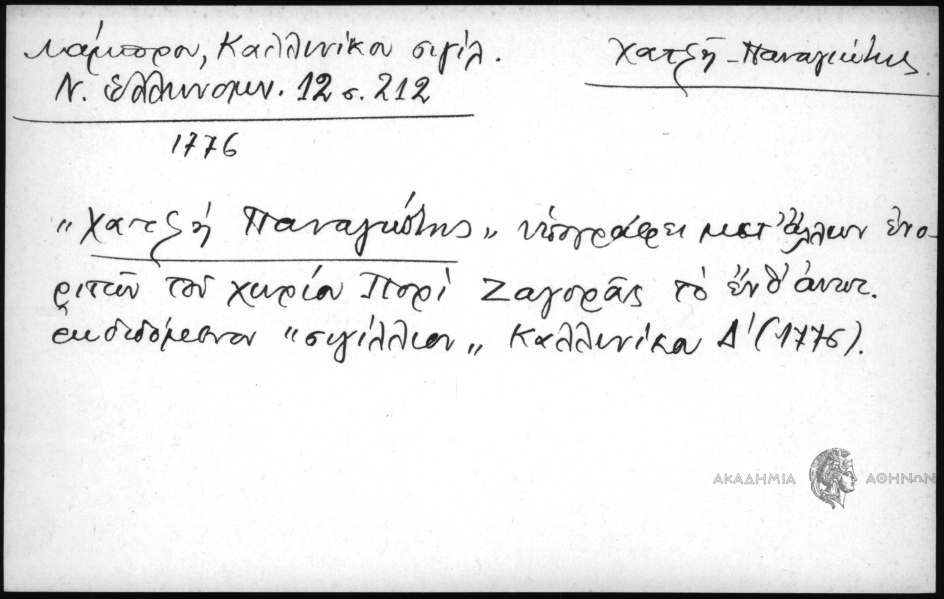 Λάμπρου, Καλλινίκου σιγίλ.
Ν. Ἑλληνομν. 12 σ. 212
Χατζῆ-Παναγιώτης
1776
"Χατζῆ Παναγιώτης" ὑπογράφει μετ' ἄλλων ἐνο-
ριτῶν τοῦ χωρίου Πορὶ Ζαγορᾶς τὸ ἐνθ' ἀνωτ.
ἐκδιδόμενον "σιγίλλιον" Καλλινίκου Δ' (1776).
ΑΚΑΔΗΜΙΑ ΑΘΗΝΩΝ